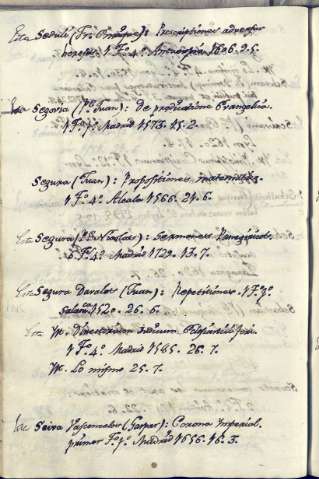 Esta Sedulii (Fr. Enrique): Prescriptiones adversus
hereses. 1 T.º 4.º Antuerpia 1606. 2. 5.
Segovia (P.e Juan): De predicatione Evangelica.
1 T.º f.º Madrid 1573. 15. 2.
Segura (Juan): Propositiones
1 T.º 4.º Alcala 1566. 21. 6.
Esta Segura (P.e Nicolas): Sermones Panegiricos.
T.º 4.º Madrid 1729. 13. 7.
Esta Segura Davalos (Juan): Repetitiones. 1 T.º f.º
Salam.ca 1520. 26. 6.
Esta Yt. Directorium Judicum
1 T.º 4.º Madrid 1585. 26. 7.
Yt. Lo mismo 25. 7.
Seixa Vasconcelos (Gaspar): Corona Imperial.
primer T.º f.º Madrid 1656. 16. 3.